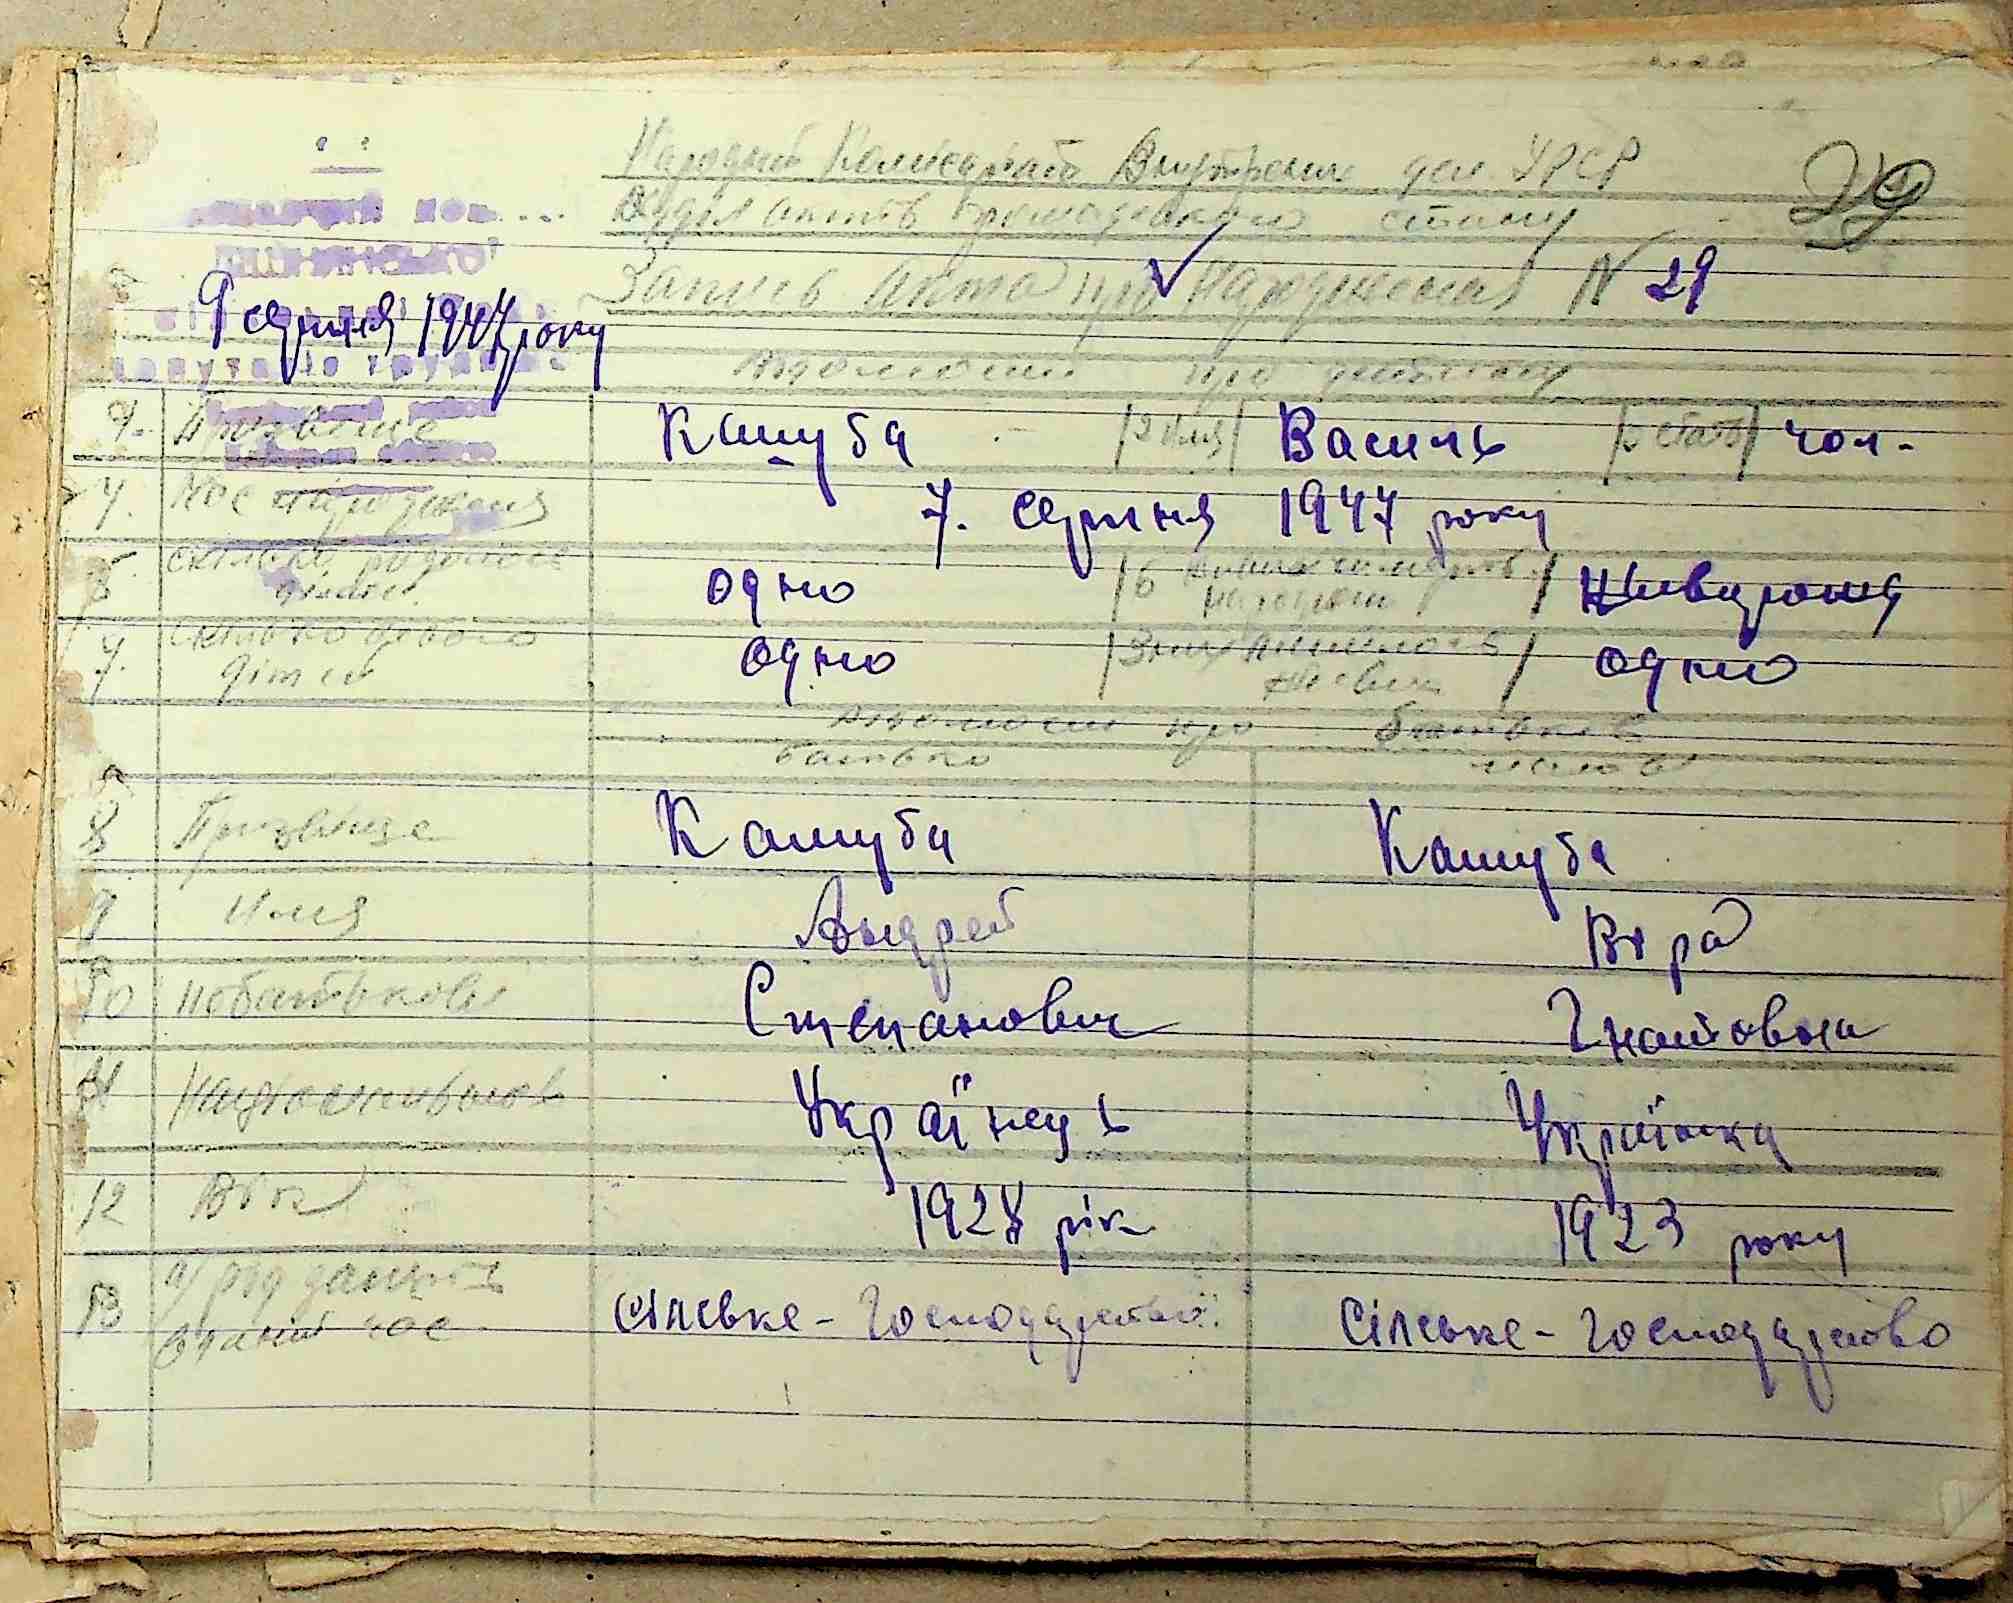 Народний Комисаріат Внутрених дел УРСР 29
Відділ актів громадского стану
Запись Акта про Народження N 29
9 серпня 1947 року
Відомости про дитину
1. Призвище Кашуба /2 Имя/ Василь /3 стать/ чол-
4. Час народження 7. серпня 1947 року
5 скілько родилося дітей одно /6 народж / Живорожд
7. скілько дітей одно / живих / одно
Відомости про батьків
батько матів
8 Призвище Кашуба Кашуба
9 Имя Андрей Віра
10 Побатькові Степанович Гнатовна
11 Національность Українець Українка
12 Вік 1928 рік 1923 року
13 а/ род занять Сільське-Господарство Сільське-Господарство
час